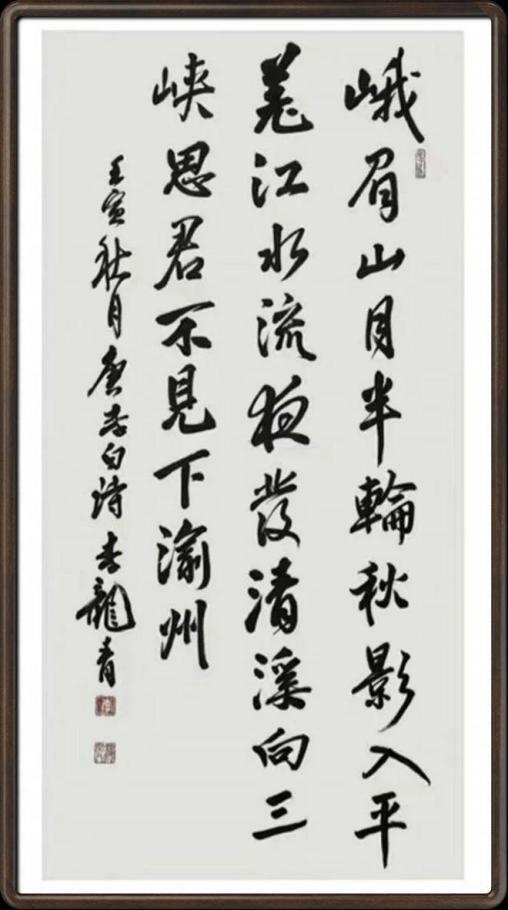 峨眉山月半輪秋影入平
羌江水流夜發清溪向三
峽思君不見下渝州
壬寅秋月唐李白詩李龍青